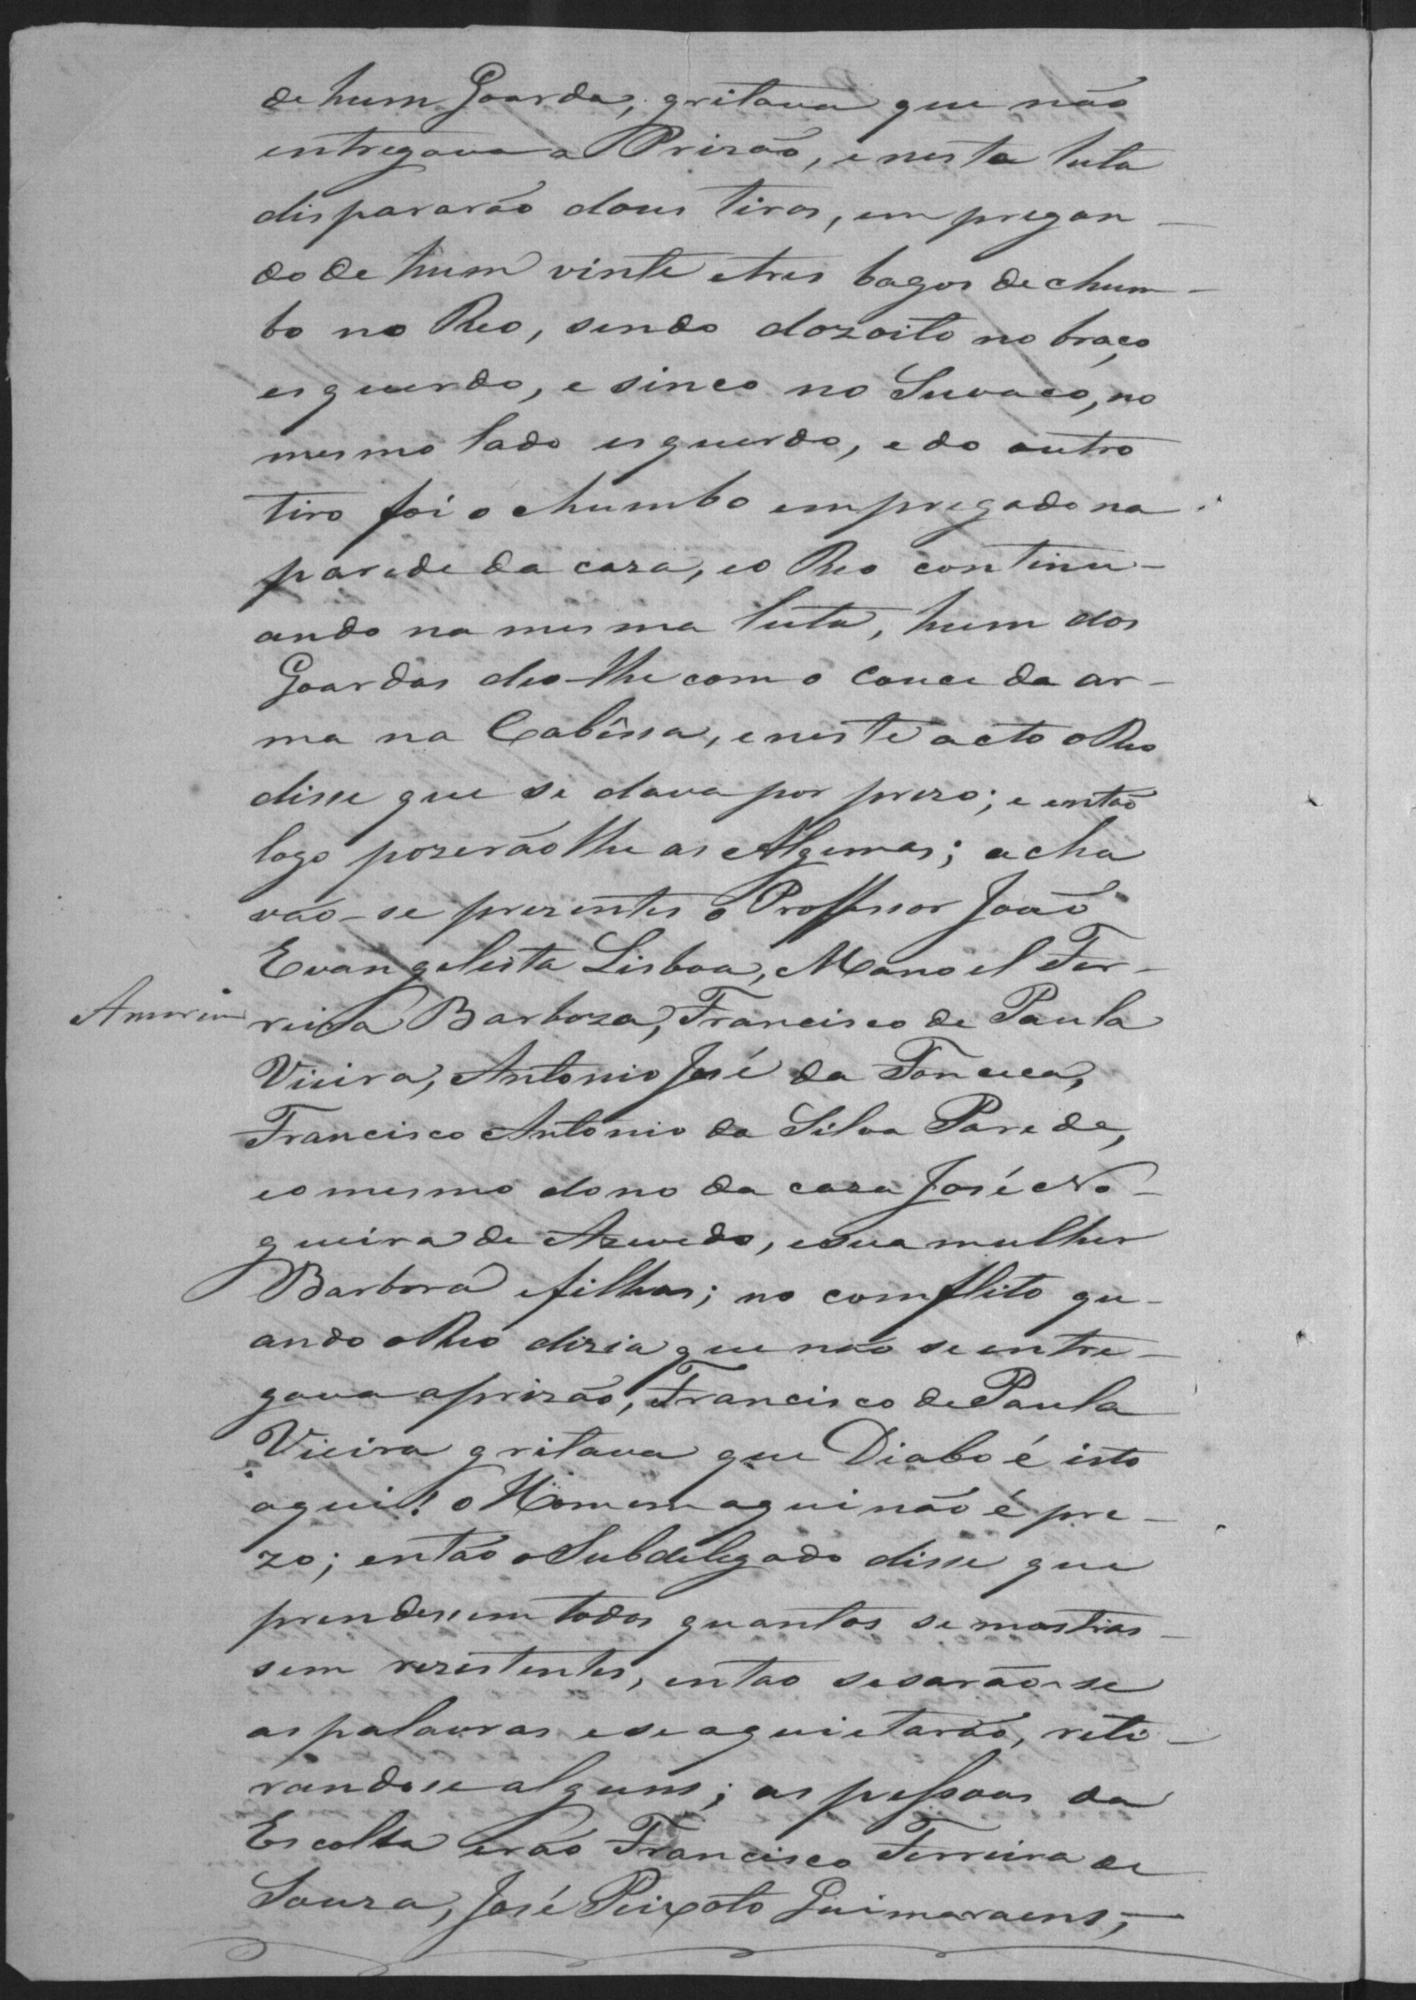 de hum Goarda, gritava que não
entregava a Prizão, e nesta luta
dispararão dous tiros, empregan-
do de hum vinte e tres bagos de chum-
bo no Reo, sendo dozoito no braço
esquerdo, e sinco no Suvaco, no
mesmo lado esquerdo, e do outro
tiro foi o chumbo empregado na
parede da caza, e o Reo continu-
ando na mesma luta, hum dos
Goardas deo-lhe com o couce da ar-
ma na Cabêssa, e neste acto o Reo
disse que se dava por prezo; e então
logo pozerão lhe as Algemas; acha
vão-se prezentes o Professor João
Evangelista Lisboa, Manoel Fer-
Amorim reira Barboza, Francisco de Paula
Vieira, Antonio José da Fonceca,
Francisco Antonio da Silva Parede,
e o mesmo dono da caza José No-
gueira de Azevedo, e sua mulher
Barbora e filhas; no comflito qu-
ando o Reo dizia que não se entre-
gava a prizão, Francisco de Paula
Vieira gritava que Diabo é isto
aqui! o Homem aqui não é pre-
zo; então o Subdelegado disse que
prendessem todos quantos se mostras-
sem rezestentes, entao sesarão-se
as palavras e se aquietarão, reti-
randose alguns; as pessoas da
Escolta erão Francisco Ferreira de
Souza, José Peixoto Guimaraens,-